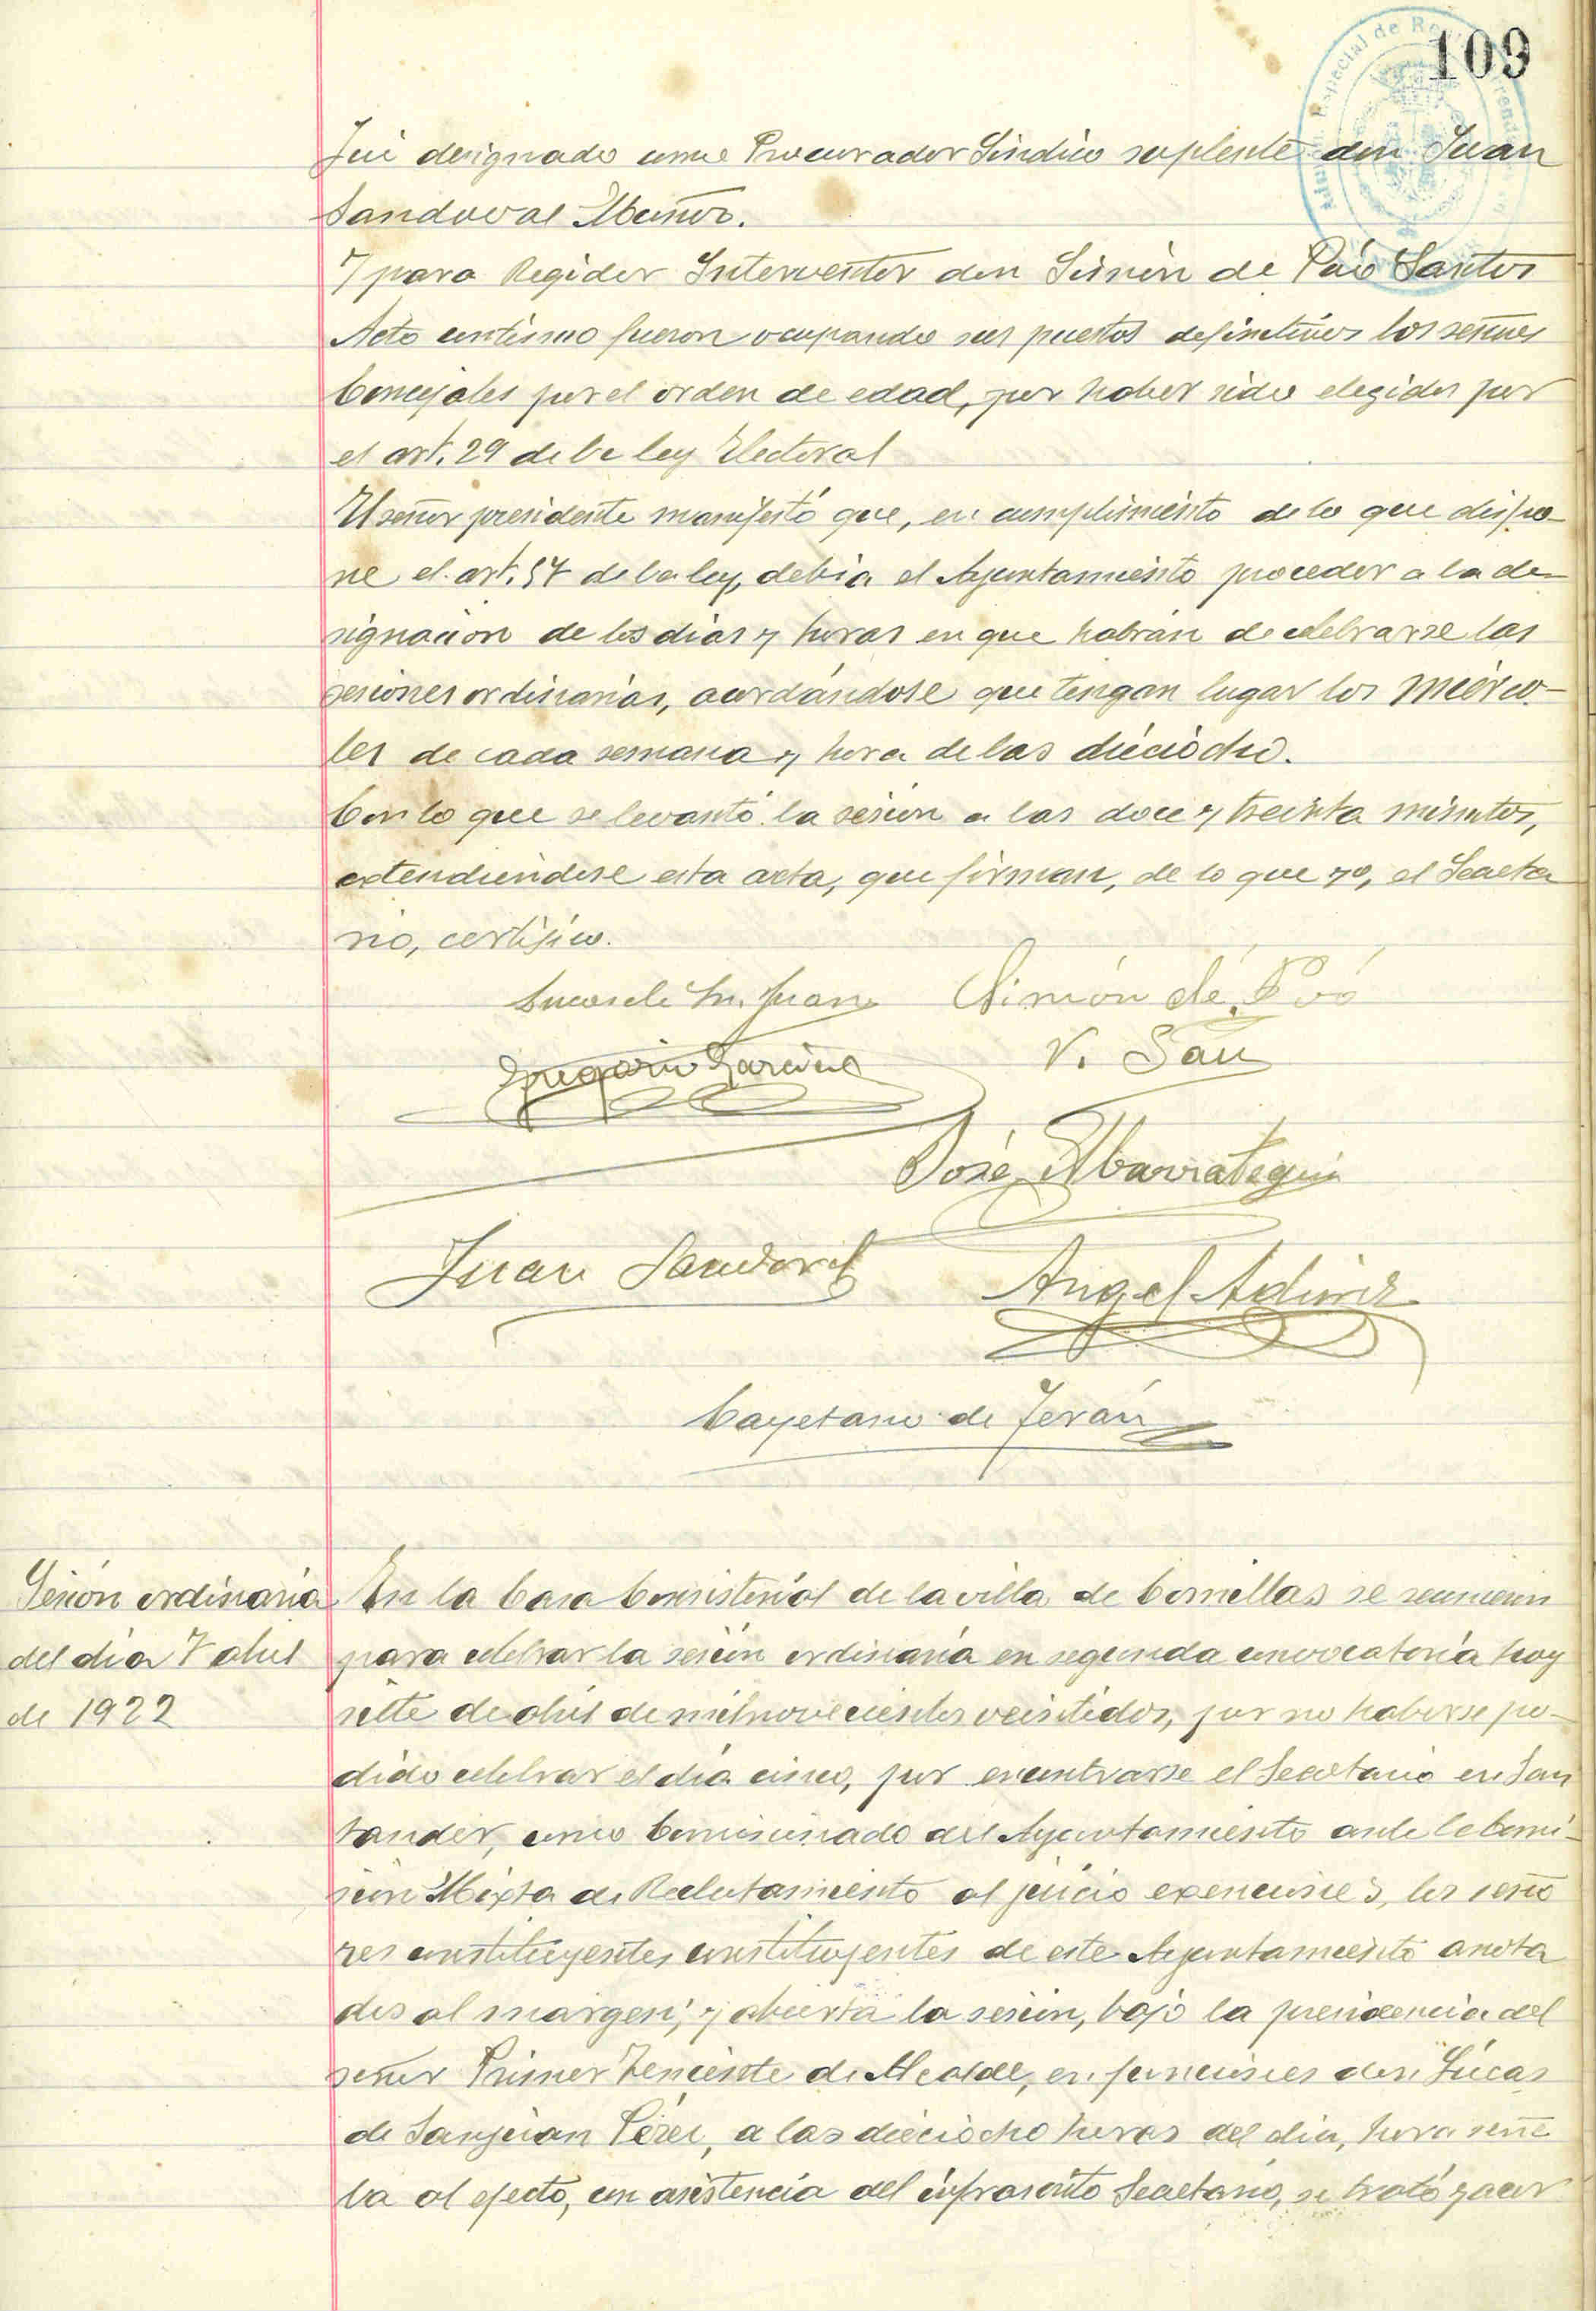 109
Fué designado como Procurador Síndico suplente don Juan
Sandoval
Y para Regidor Interventor don Simón de Póo Santos
Acto contínuo fueron ocupando sus puestos definitivos los señores
Concejales por el orden de edad, por haber sido elegidos por
el art. 29 de la ley Electoral
El señor presidente manifestó que, en cumplimiento de lo que dispo-
ne el art. 57 de la ley, debía el Ayuntamiento proceder a la de-
signación de los días y horas en que habrán de celebrarse las
sesiones ordinarias, acordándose que tengan lugar los miérco-
les de cada semana y hora de las dieciocho.
Con lo que se levantó la sesión a las doce y treinta minutos,
extendiéndose esta acta, que firman, de lo que yo, el Secreta
rio, certifico.
Lucas de Sn. Juan Simón de Póo
Gregorio V. Sau
José Abarrategui
Juan Sandoval Angel
Cayetano de Terán
Sesión ordinaria
del día 7 abril
de 1922
En la Casa Consistorial de la villa de Comillas se reunieron
para celebrar la sesión ordinaria en segunda convocatoria hoy
siete de abril de mil novecientos veintidos, por no haberse po-
dido celebrar el día cinco, por encontrarse el Secretario en San
tander, como Comisionado del Ayuntamiento ante la Comi-
sión Mixta de Reclutamiento al juicio exenciones, los seño
res constituyentes constituyentes de este Ayuntamiento anota
dos al margen; y abierta la sesión, bajo la presidencia del
señor Primer Teniente de Alcalde, en funciones don Lúcas
de Sanjuan Pérez, a las dieciocho horas del día, hora seña
la al efecto, con asistencia del infrascrito Secretario, se trató y acor